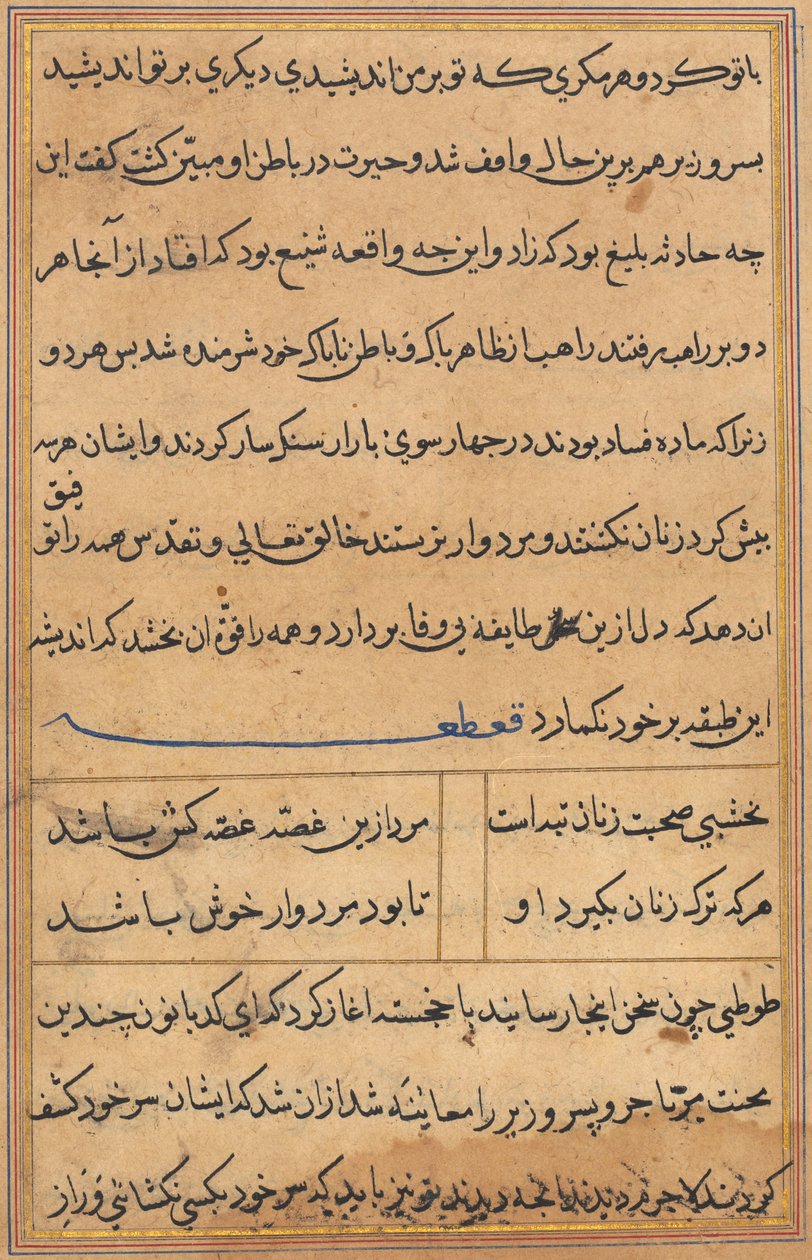 باتو کرد و هر مکري که تو بر من اندیشیدي دیکري بر تو اندیشید
بسر وزیر هم برین حال واقف شد و حیرت در باطن او مبیّن کشت کفت این
چه حادثه بلیغ بود که زاد و این جه واقعه شنیع بود که افتاد از آنجا هر
دو بر راهب رفتند راهب از ظاهر باک و باطن ناباک خود شرمنده شد بس هر دو
زنرا که ماده فساد بودند در جهار سوي بازار سنکسار کردند و ایشان هر سه
بیش کرد زنان نکشتند و مردوار بزیستند خالق تعالي و تقدس همه را توفیق
ان دهد که دل ازین طایفه بي وفا بردارد و همه را قوّة ان بخشد که اندیشه
این طبقه بر خود نکمارد قطعه
نخشبي صحبت زنان تبه است مرد ازین غصّه غصّه کش باشد
هر که ترک زنان بکیرد او تا بود مردوار خوش باشد
طوطي چون سخن اینجا رسانید با خجسته اغاز کرد که اي کدبانو ن چندین
محنت مر تاجر و پسر وزیر را معاینه شد ازان شد که ایشان سر خود کشف
کردند لاجرم دیدند انجه دیدند تو نیز باید که سر خود بکسي نکشائي و راز